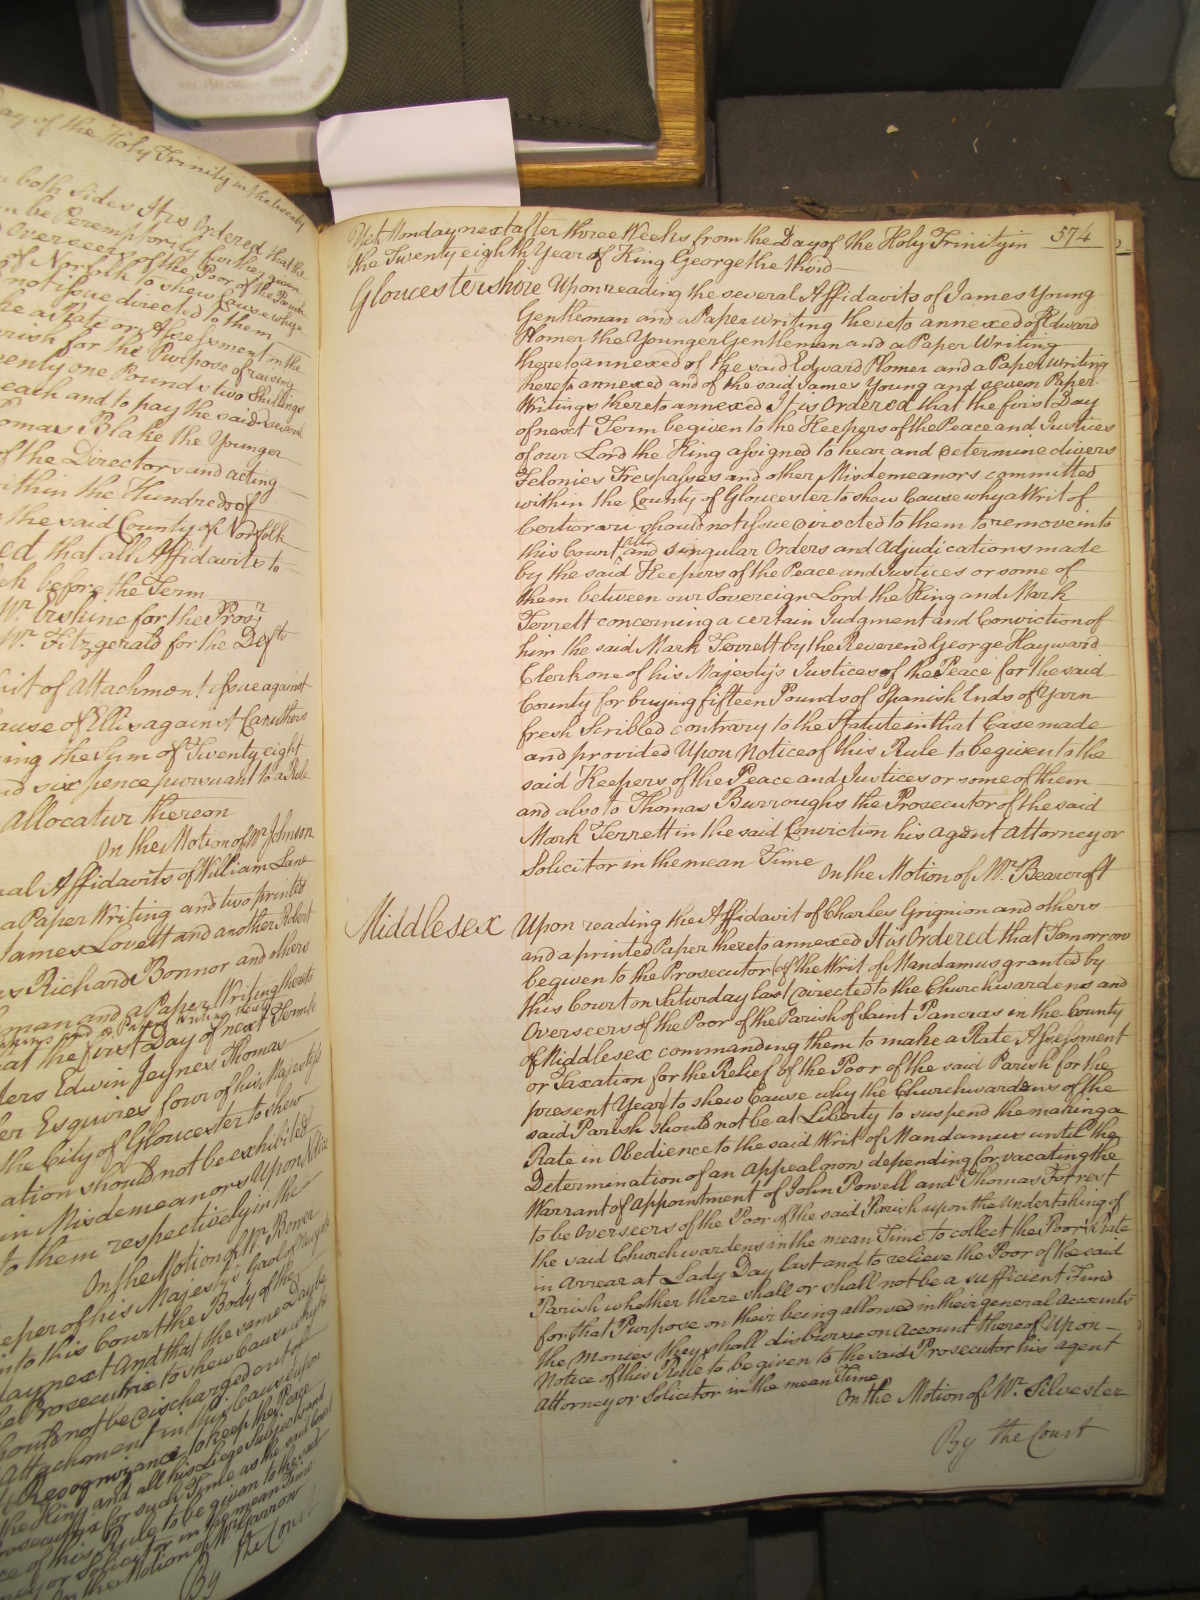 Day of the Holy Trinity in the twenty
both sides It is Ordered that the
be Peremptorily further given
Overseers of the Poor of the Parish
of Norfolk to shew Cause why a
not issue directed to them
a Rate or Assessment on the
rish for the Purpose of raising
twenty one Pounds two Shillings
each and to pay the said several
Thomas Blake the Younger
of the Directors and acting
within the Hundreds of
the said County of Norfolk
ed that all Affidavits to
before the Term
Mr. Erskine for the Pros.r
Mr. Fitzgerald for the Deft
Writ of Attachment issue against
Cause of Ellis against Caruthers
ing the Sum of Twenty eight
and six pence pursuant to a Rule
Allocatur thereon
On the Motion of Mr Johnson
Affidavits of William Lane
a Paper Writing and two printed
James Lovett and another Robert
Richard Bonnor and others
and a Paper Writing thereto
at the first Day of next Term be
Edwin Jeynes Thomas
Esquires four of his Majestys
the City of Gloucester to shew
ation should not be exhibited
in Misdemeanors Upon Notice
to them respectively in the
On the Motion of Mr Bower
eeper of his Majesty's Gaol of Newgate
into this Court the Body of the
day next And that the same Day be
Prosecutrix to shew Cause why
should not be discharged out of
Attachment in this Cause
Recognizance to keep the Peace
the King and all his Liege Subjects and
Prosecutrix for such Time as the said Court
of this Rule to be given to the said
ney or Solicitor in the mean Time
On the Motion of Mr Garrow
By the Court
Yet Monday next after three Weeks from the Day of the Holy Trinity in 574
the Twenty eighth Year of King George the third
Gloucestershire Upon reading the several Affidavits of James Young
Gentleman and a Paper writing thereto annexed of Edward
Plomer the Younger Gentleman and a Paper Writing
thereto annexed of the said Edward Plomer and a Paper writing
hereto annexed and of the said James Young and seven Paper
Writings thereto annexed It is Ordered that the first Day
of next Term be given to the Keepers of the Peace and Justices
of our Lord the King assigned to hear and determine divers
Felonies Trespasses and other Misdemeanors committed
within the County of Gloucester to shew Cause why a Writ of
Certiorari should not issue directed to them to remove into
this Court all and singular Orders and Adjudications made
by the said Keepers of the Peace and Justices or some of
them between our Sovereign Lord the King and Mark
Terrett concerning a certain Judgment and Conviction of
him the said Mark Terrett by the Reverend George Hayward
Clerk one of his Majesty's Justices of the Peace for the said
County for buying fifteen Pounds of Spanish Ends of Yarn
fresh Scribled contrary to the Statute in that Case made
and provided Upon Notice of this Rule to be given to the
said Keepers of the Peace and Justices or some of them
and also to Thomas Burroughs the Prosecutor of the said
Mark Terrett in the said Conviction his agent attorney or
Solicitor in the mean Time
On the Motion of Mr. Bearcroft
Middlesex Upon reading the Affidavit of Charles Grignion and others
and a printed Paper thereto annexed It is Ordered that Tomorrow
be given to the Prosecutor of the Writ of Mandamus granted by
this Court on Saturday last directed to the Churchwardens and
Overseers of the Poor of the Parish of Saint Pancras in the County
of Middlesex commanding them to make a Rate Assessment
or Taxation for the Relief of the Poor of the said Parish for the
present Year to shew Cause why the Churchwardens of the
said Parish should not be at Liberty to suspend the making a
Rate in Obedience to the said Writ of Mandamus until the
Determination of an Appeal now depending for vacating the
Warrant of Appointment of John Powell and Thomas Forrest
to be Overseers of the Poor of the said Parish upon the undertaking of
the said Churchwardens in the mean Time to collect the Poor Rate
in Arrear at Lady Day last and to relieve the Poor of the said
Parish whether there shall or shall not be a sufficient Fund
for that Purpose on their being allowed in their general Accounts
the Monies they shall disburse on Account thereof Upon
Notice of this Rule to be given to the said Prosecutor his agent
attorney or Solicitor in the mean Time
On the Motion of Mr. Silvester
By the Court